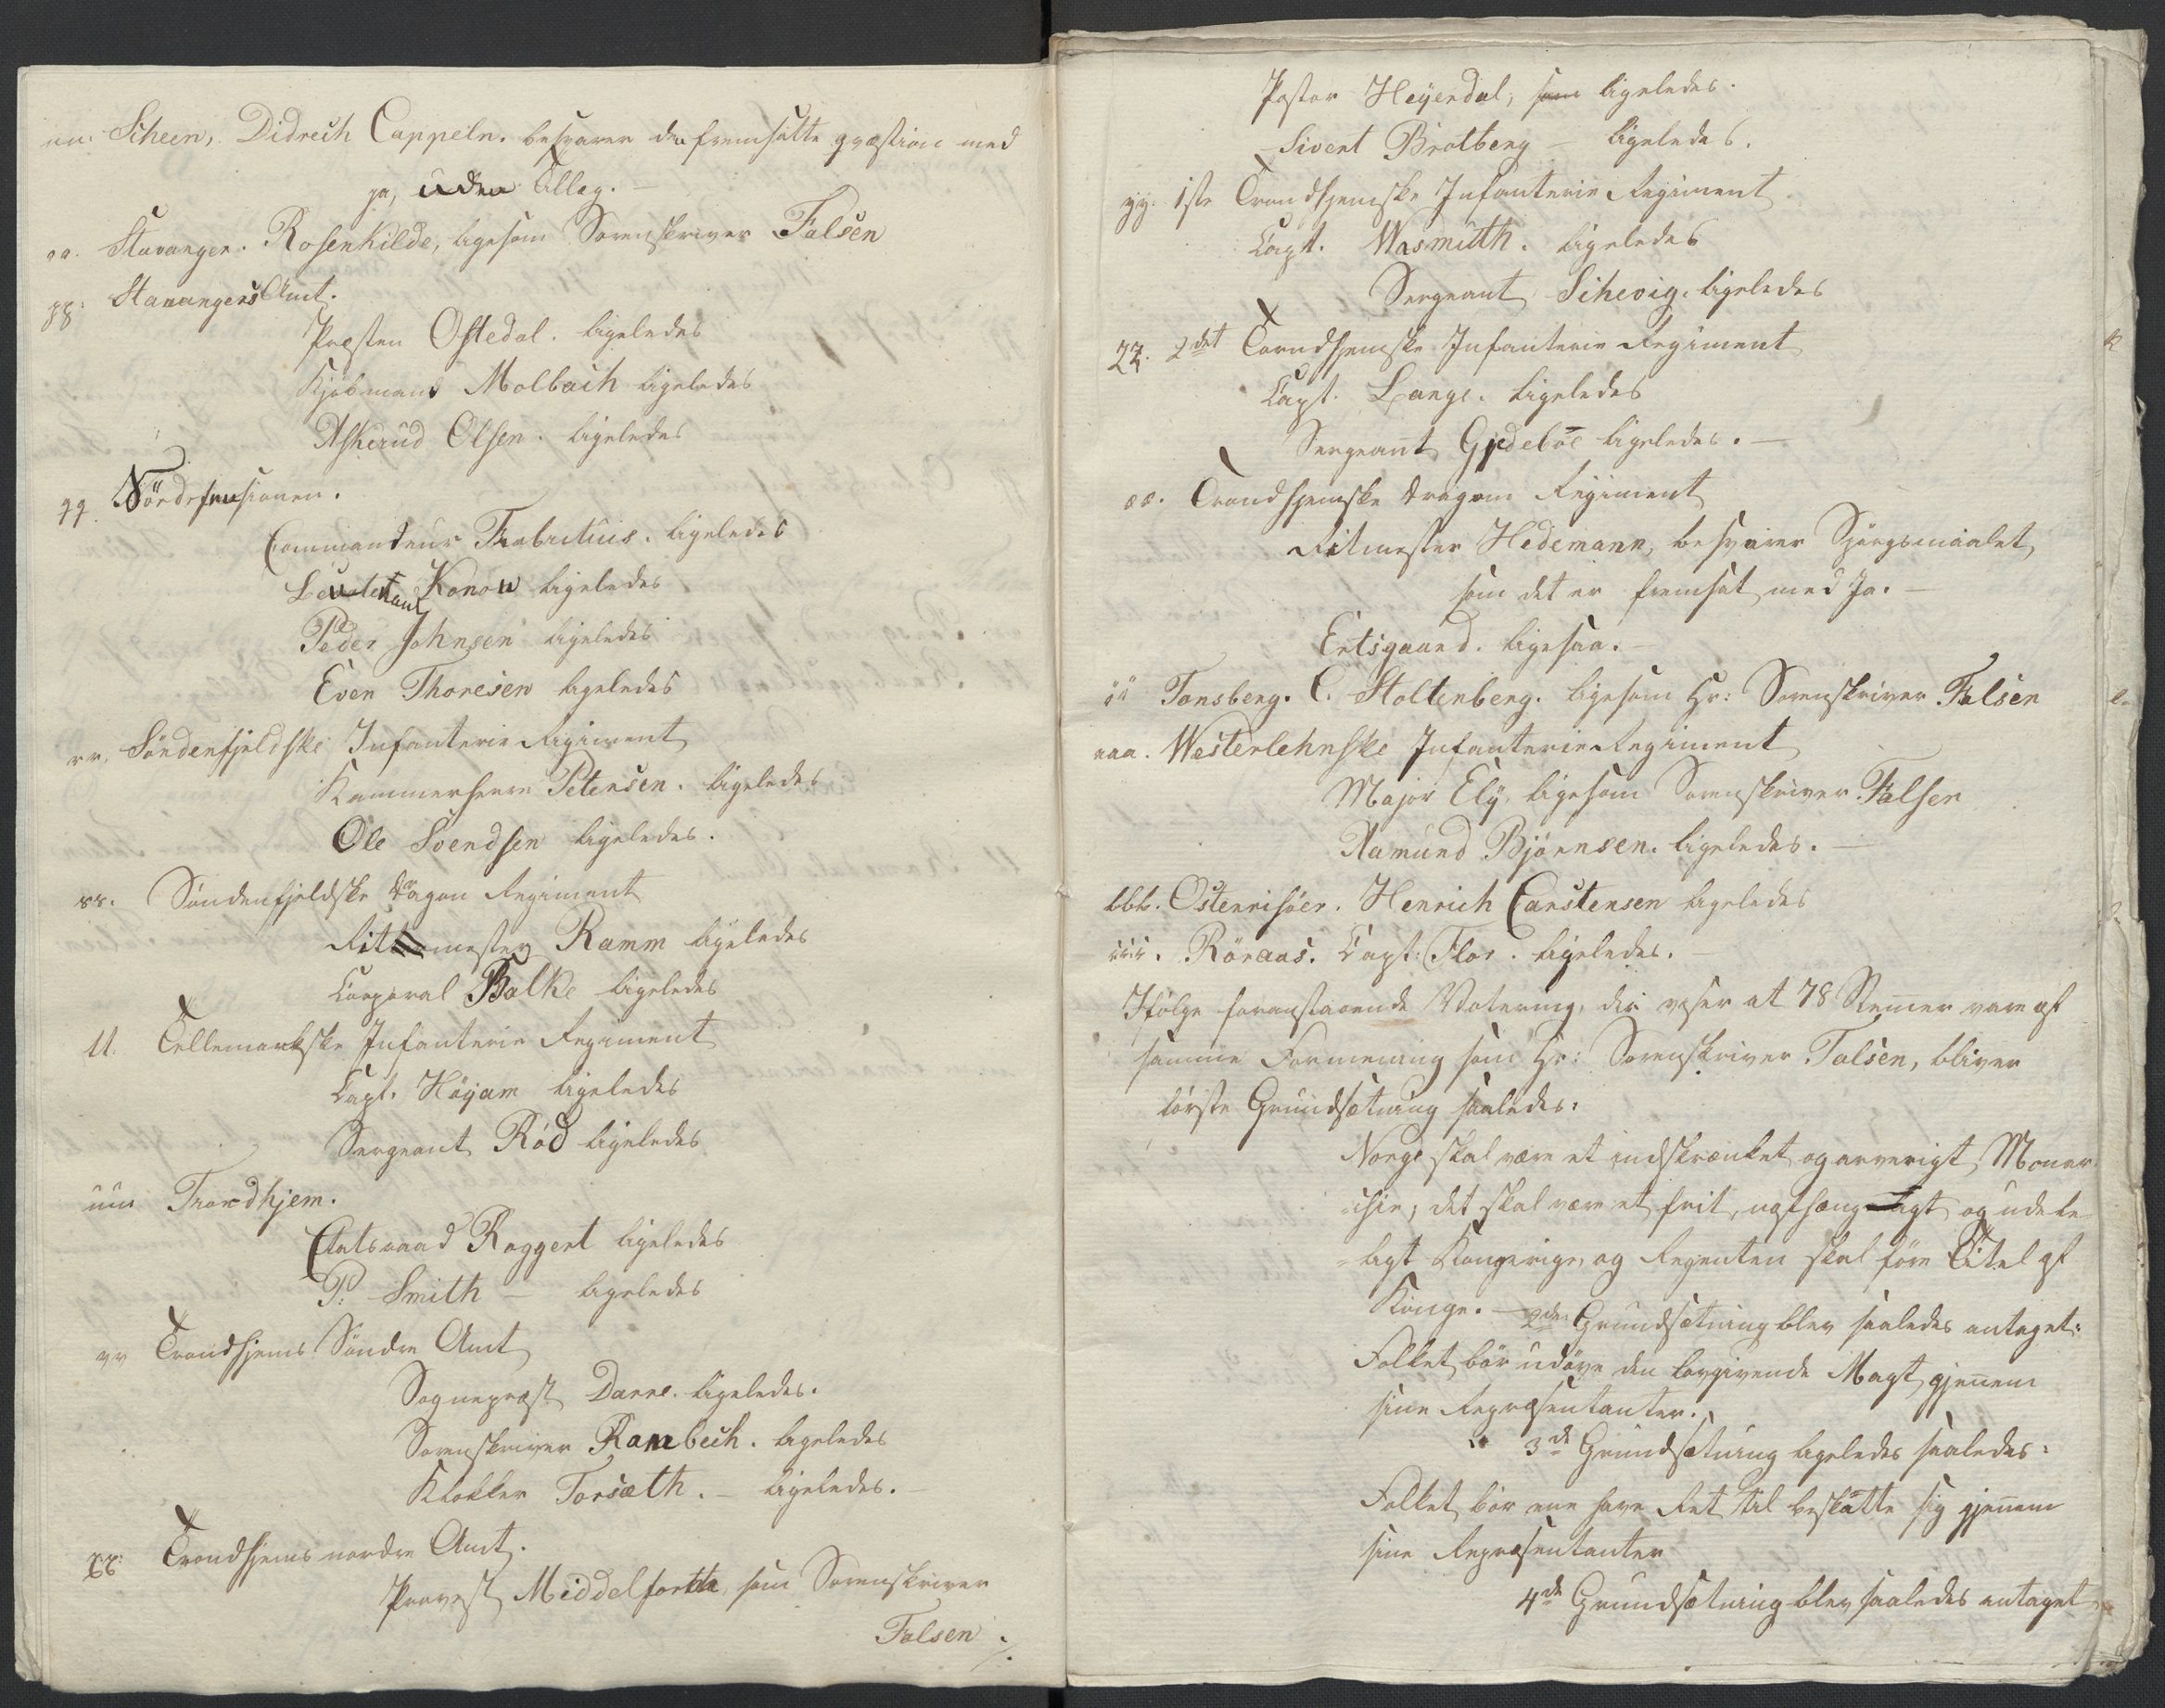 nn. Scheen, Didrich Cappeln. besvarer den fremsatte qvæstion med
ja, uden Tillæg. —
oo. Stavanger. Rosenkilde, ligesom Sorenskriver Falsen
pp: Stavangers Amt.
Præsten Oftedal. ligeledes
Kjøbmand Molbach ligeledes
Asherud Olsen. ligeledes
qq. Södefensionen.
Commandeur Fabritius. ligeledes
Leutenant Konow ligeledes
Peder Johnsen ligeledes
Even Thoresen ligeledes
rr. Söndenfjeldske Infanterie Regiment
Kammerherre Petersen. ligeledes
Ole Svendsen ligeledes.
ss. Söndenfjeldske Dragon Regiment
Ritmester Ramm ligeledes
Corporal Balke ligeledes
tt. Tellemarkske Infanterie Regiment
Capt. Höyam ligeledes
Sergeant Röd ligeledes
uu Trondhjem.
Etatsraad Roggert ligeledes
P: Smith — ligeledes
vv Trondhjems Söndre Amt
Sognepræst Darre. ligeledes.
Sorenskriver Rambech. ligeledes
Klokker Forsæth. — ligeledes. —
xx: Trondhjems nordre Amt.
Provst Middelfarth, som Sorenskriver
Falsen ./.
Pastor Heyerdal, som ligeledes.
Sivert Bratberg — ligeledes.
yy: 1ste Trondhjemske Infanterie Regiment
Capt. Wasmuth. ligeledes
Sergeant Schevig. ligeledes
zz. 2det Trondhjemske Infanterie Regiment
Capt. Lange. ligeledes
Sergeant Gjedeböe ligeledes. —
ææ. Trondhjemske Dragon Regiment
Ritmester Hedemann, besvarer Spörgsmaalet,
som det er fremsat med Ja. —
Ertsgaard. ligesaa. —
öö Tonsberg. C. Stoltenberg. ligesom Hr: Sorenskriver Falsen
aaa. Westerlehnske Infanterie Regiment
Major Ely, ligesom Sorenskriver Falsen
Aamund Björnsen. ligeledes. —
bbb. Osterrisöer. Henrich Carstensen ligeledes
ccc. Röraas. Capt: Flor. ligeledes. —
Ifölge foranstaaende Votering, der viser at 78 Stemer vare af
samme Formening som Hr: Sorenskriver Falsen, bliver
förste Grundsætning saaledes:
Norge skal være et indskrænket og arveligt Monar
chie; det skal være et frit, uafhængigt og udele
=ligt Kongerige, og Regenten skal före Titel af
Konge. — 2den Grundsætning blev saaledes antaget:
Folket bör udöve den lovgivende Magt gjennem
sine Repræsentanter.
3die Grundsætning ligeledes saaledes:
Folket bör ene have Ret til beskatte sig gjennem
sine Repræsentanter
4de Grundsætning blev saaledes antaget